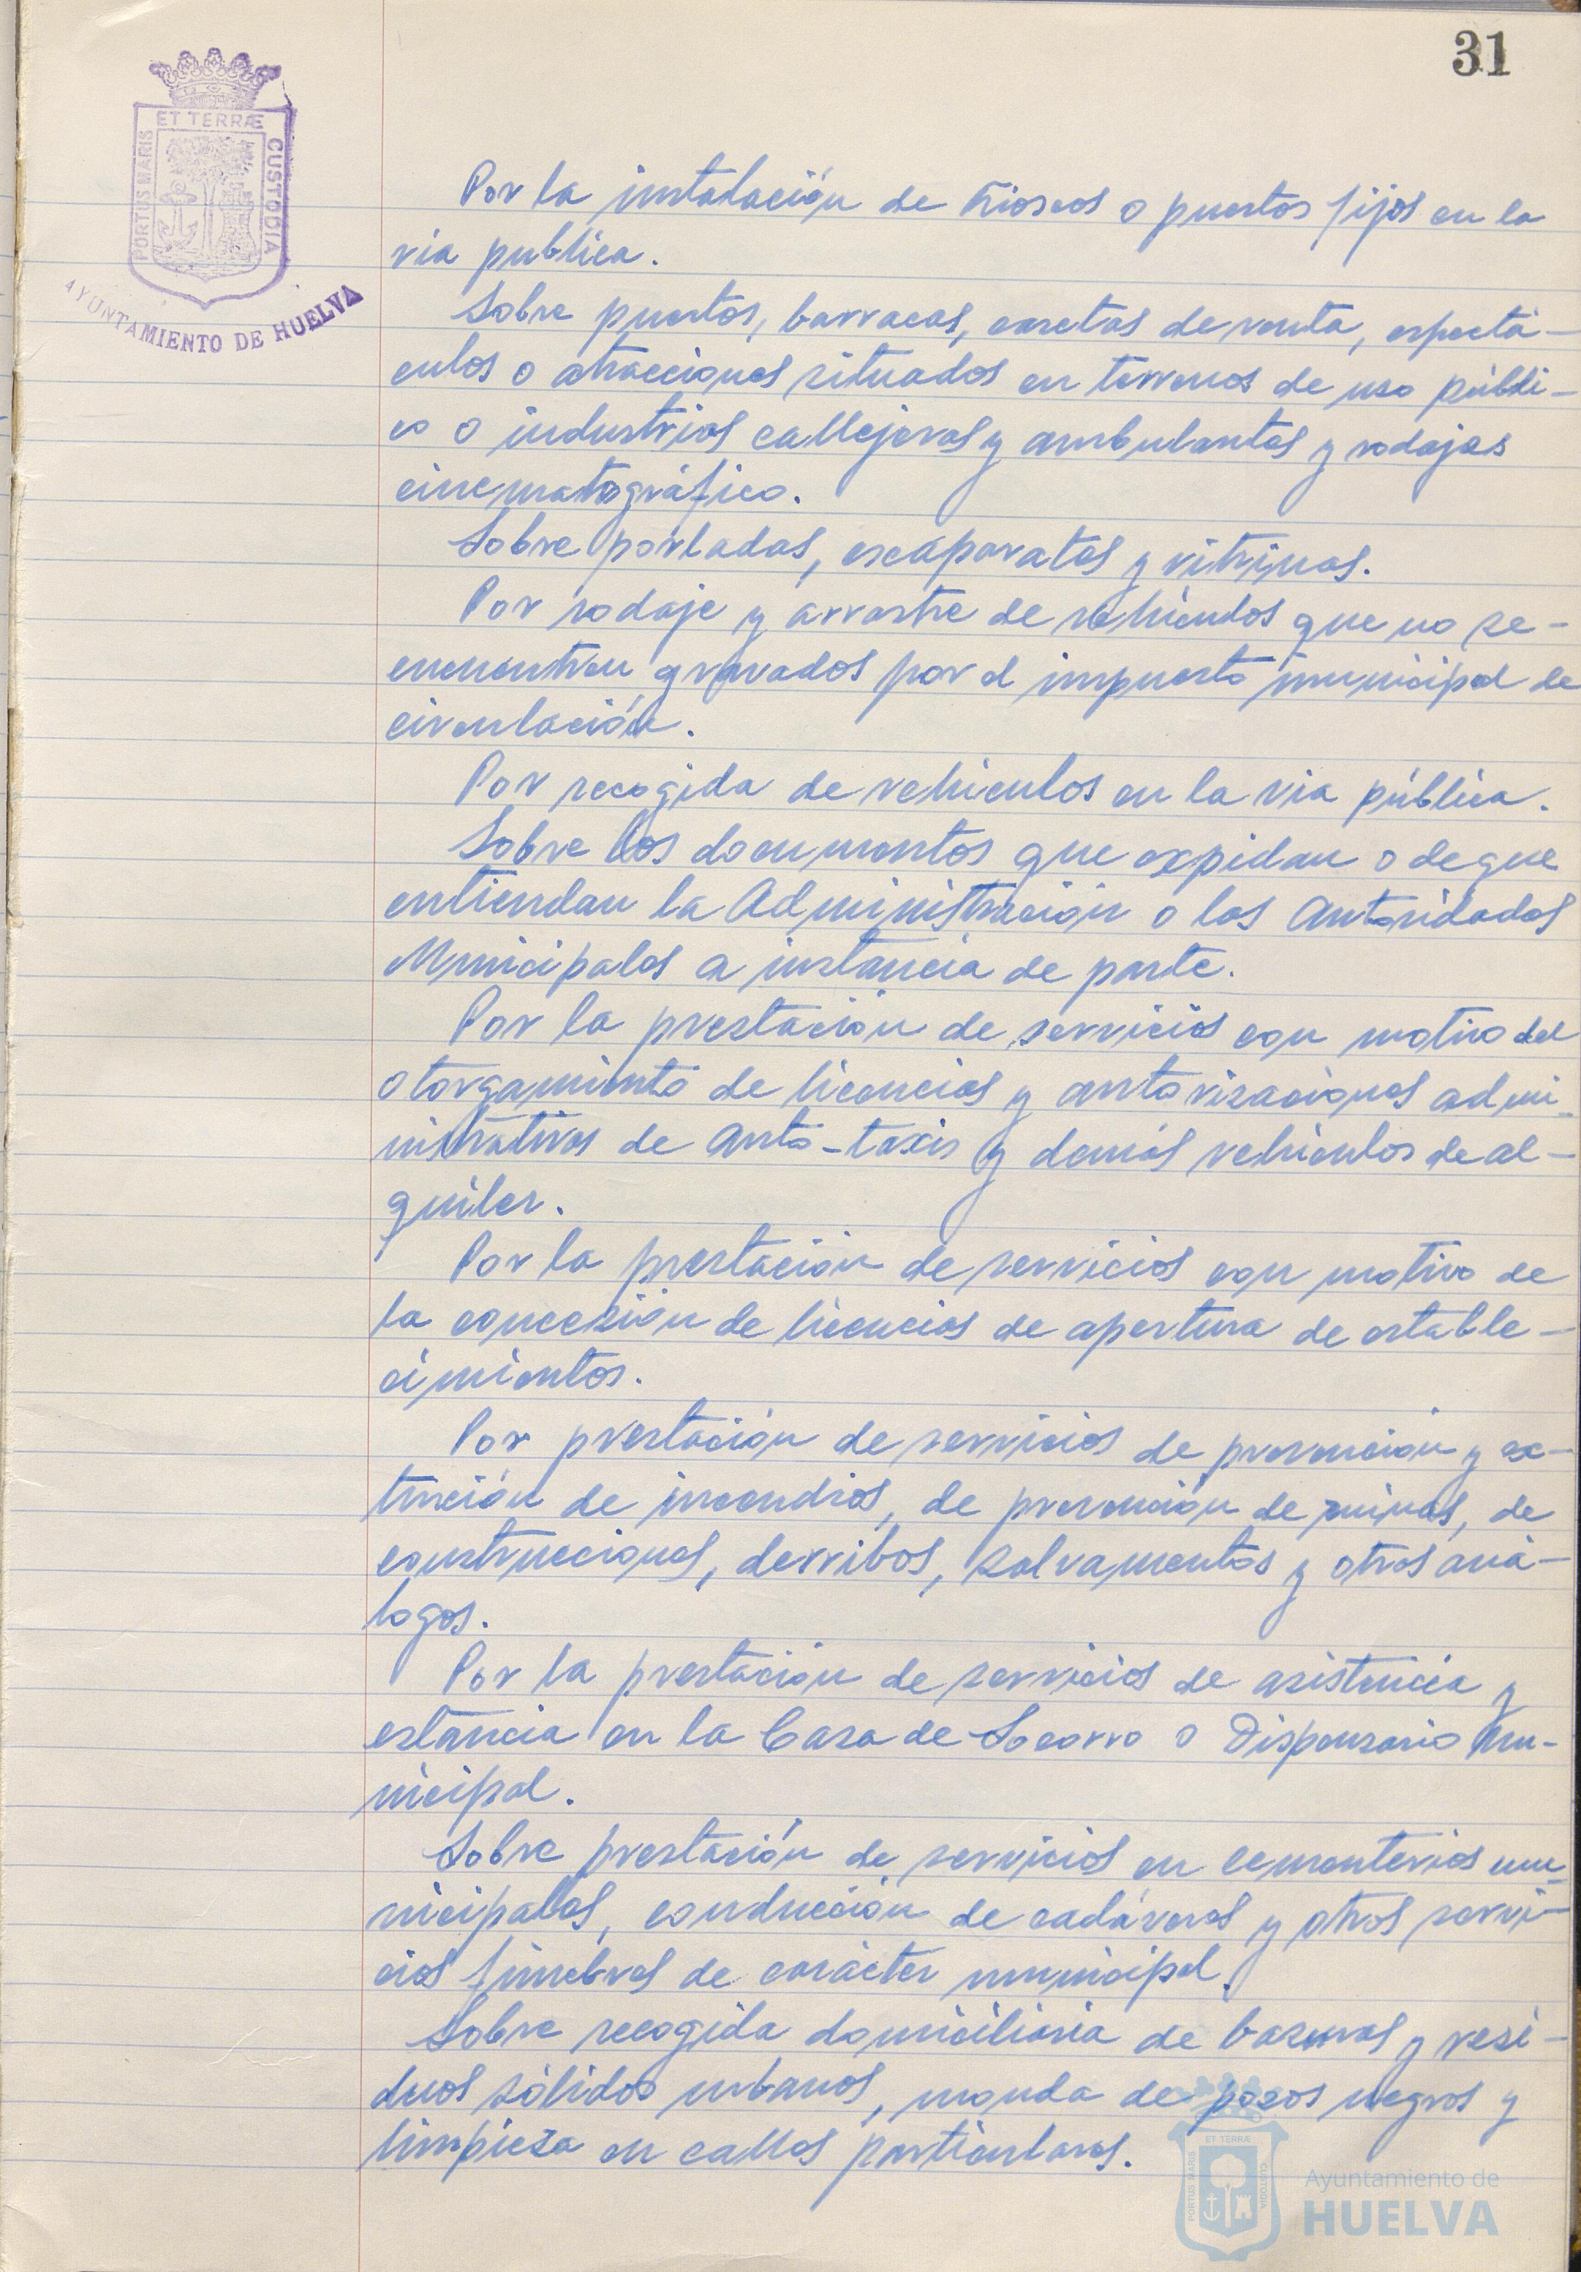 31
ET TERRÆ
PORTUS MARIS
CUSTODIA
AYUNTAMIENTO DE HUELVA
Por la instalación de kioscos o puestos fijos en la
via publica.
Sobre puestos, barracas, casetas de venta, espectá-
culos o atracciones situados en terrenos de uso públi-
co o industrias callejeras y ambulantes y rodajes
cinematográfico.
Sobre portadas, escaparates y vitrinas.
Por rodaje y arrastre de vehículos que no se-
encuentren gravados por el impuesto municipal de
circulación.
Por recogida de vehiculos en la via pública.
Sobre los documentos que expidan o de que
entiendan la Administración o las Autoridades
Municipales a instancia de parte.
Por la prestación de servicios con motivo del
otorgamiento de licencias y autorizaciones admi-
nistrativas de auto-taxis y demás vehiculos de al-
quiler.
Por la prestación de servicios con motivo de
la concesión de licencias de apertura de estable-
cimientos.
Por prestación de servicios de prevención y ex-
tinción de incendios, de prevención de ruinas, de
construcciones, derribos, salvamentos y otros aná-
logos.
Por la prestación de servicios de asistencia y
estancia en la Casa de Socorro o Dispensario Mu-
nicipal.
Sobre prestación de servicios en cementerios mu-
nicipales, conducción de cadáveres y otros servi-
cios fúnebres de carácter municipal.
Sobre recogida domiciliaria de basuras y resi-
duos sólidos urbanos, monda de pozos negros y
limpieza en calles particulares.
ET TERRÆ
PORTUS MARIS
CUSTODIA
Ayuntamiento de
HUELVA